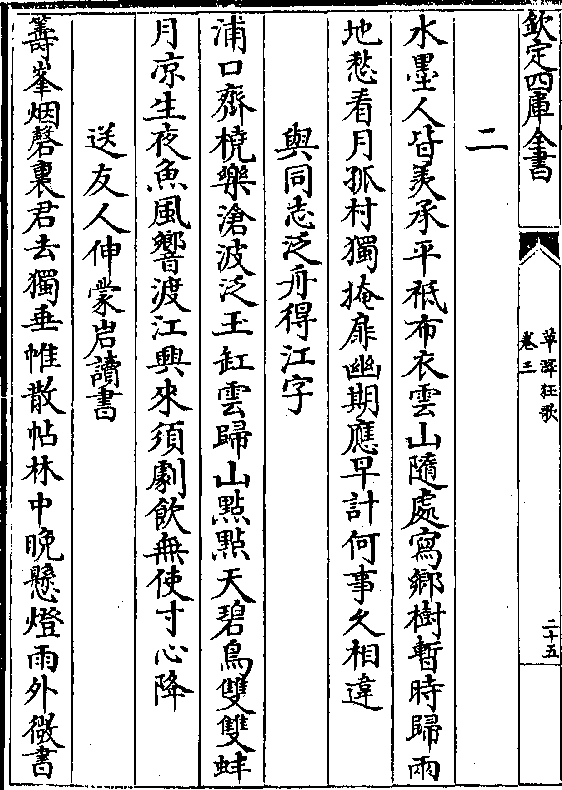 欽定四庫全書
草澤狂歌
卷三
二十五
二
水墨人皆羨承平祗布衣雲山隨處寫鄉樹暫時歸雨
地愁看月孤村獨掩扉幽期應早計何事久相違
與同志泛舟得江字
浦口齊橈樂滄波泛玉缸雲歸山點點天碧鳥雙雙蚌
月凉生夜魚風響渡江興來須劇飲無使寸心降
送友人伸蒙岩讀書
籌峯烟磬裏君去獨垂帷散帖林中晚懸燈雨外微書